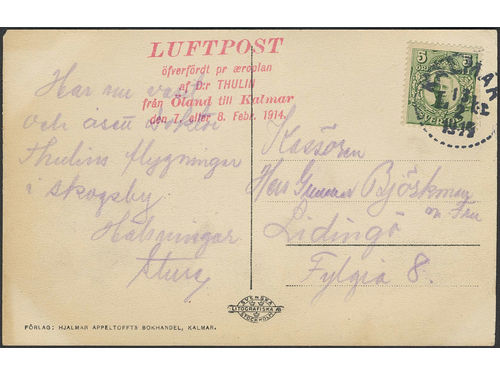 LUFTPOST
öfverfördt pr æroplan
af D:r THULIN
från Öland till Kalmar
den 7. eller 8. Febr. 1914.
Har nu varit
och asett Doktor
Thulins flygningar
i Skogsby
Hälsningar
Sture
Kassören
Herr Gunnar Björkman
m. Fru
Lidingö
Fylgia 8.
5
5
SVERIGE
1914
SVENSKA
LITOGRAFISKA AB
STOCKHOLM
FÖRLAG: HJALMAR APPELTOFFTS BOKHANDEL, KALMAR.